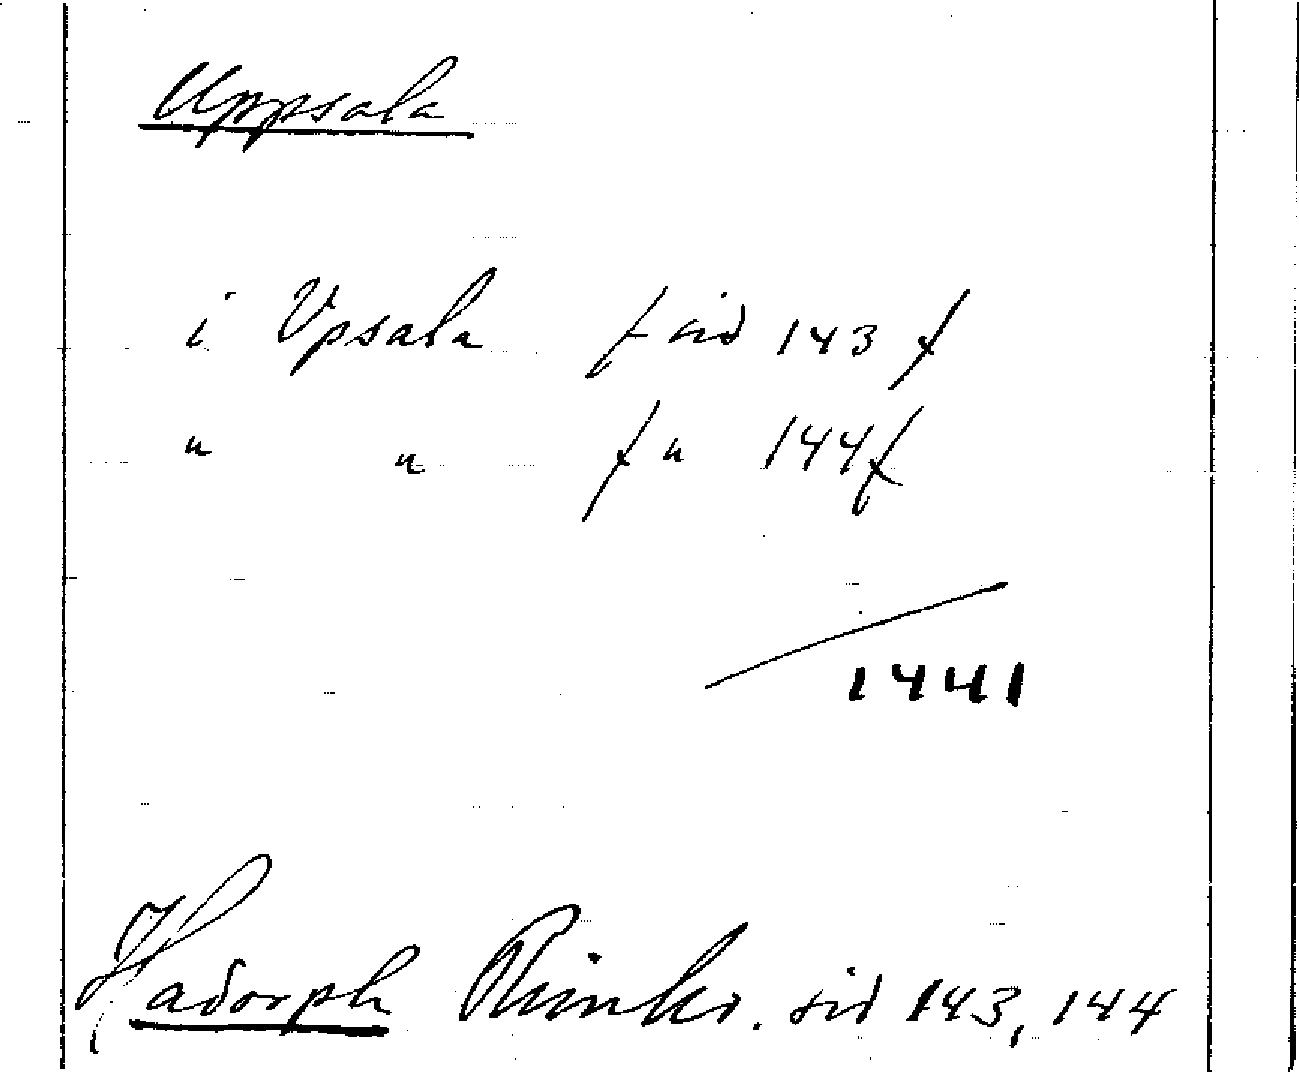 Uppsala
i Upsala f sid 143 f
" " f " 144 f
1441
Hadorph Rimkr. sid 143, 144